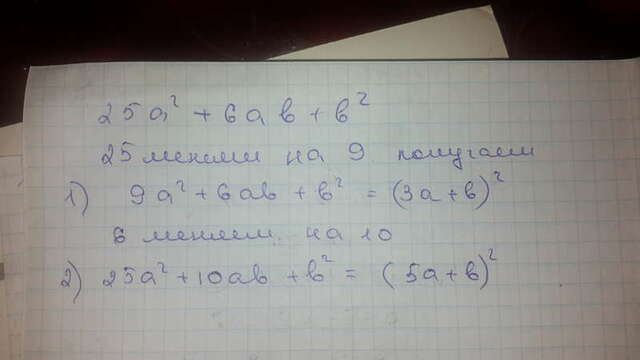 25a² + 6ab + b²
25 меняем на 9 получаем
1) 9a² + 6ab + b² = (3a + b)²
6 меняем на 10
2) 25a² + 10ab + b² = (5a + b)²